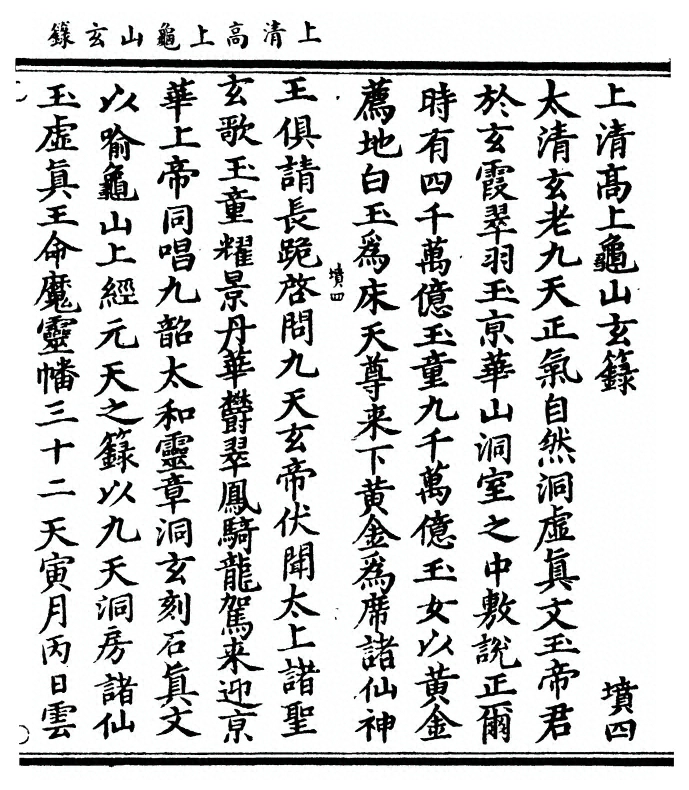 上清高上龜山玄籙
上清高上龜山玄籙 墳四
太清玄老九天正氣自然洞虛眞文玉帝君
於玄霞翠羽玉京華山洞室之中敷說正爾
時有四千萬億玉童九千萬億玉女以黃金
薦地白玉爲床天尊来下黃金爲席諸仙神
墳四
王俱請長跪啓問九天玄帝伏聞太上諸聖
玄歌玉童耀景丹華欝翠鳳騎龍駕来迎京
華上帝同唱九韶太和靈章洞玄刻石眞文
以喻龜山上經元天之籙以九天洞房諸仙
玉虛眞王命魔靈幡三十二天寅月丙日雲